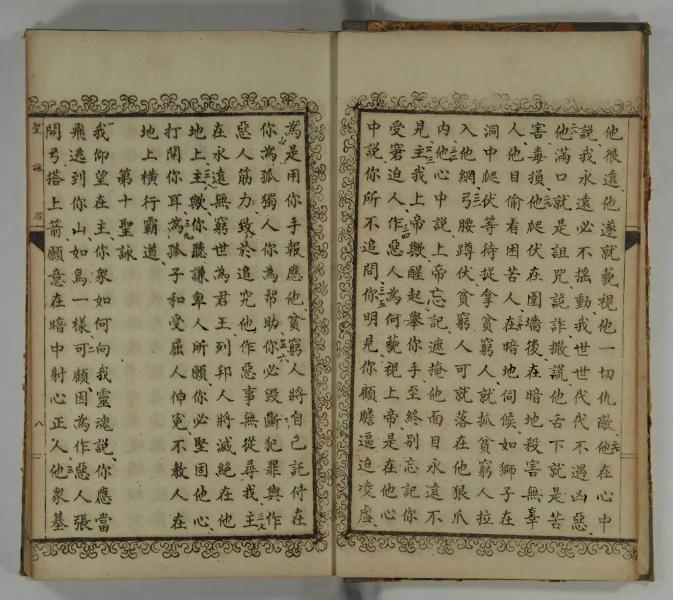 他很遠、他遂就藐視他一切仇敵、他在心中
說、我永遠必不搖動、我世世代代不遇凶惡、
他滿口就是詛咒詭詐撒謊、他舌下就是苦
害毒損、他爬伏在圍墻後、在暗地殺害無辜
人、他目偷看困苦人、在暗地伺候、如獅子在
洞中爬伏等待捉拿貧窮人、就抓貧窮人拉
入他網、弓腰蹲伏貧窮人可就落在他狠爪
內、他心中說、上帝忘記、遮掩他面目永遠不
見、主我上帝歟、醒起舉你手、至終別忘記你
受窘迫人、作惡人為何藐視上帝、是在他心
中說、你所不追問、你明見、你願瞻逼迫凌虐、
為是用你手報應他、貧窮人將自己託付在
你、為孤獨人你為幫助、你必毀斷犯罪與作
惡人筋力、致於追究他作惡事無從尋我、主
在永遠無窮世為君王、列邦人將滅絕在他
地上、主歟、你聽謙卑人所願、你必堅固他心、
打開你耳、為孤子和受屈人伸寃、不教人在
地上橫行霸道、
第十聖詠
我仰望在主、你眾如何向我靈魂說、你應當
飛逃到你山、如鳥一樣、可顧、因為作惡人張
開弓、搭上箭、願意在暗中射心正人、他眾基
聖詠
八